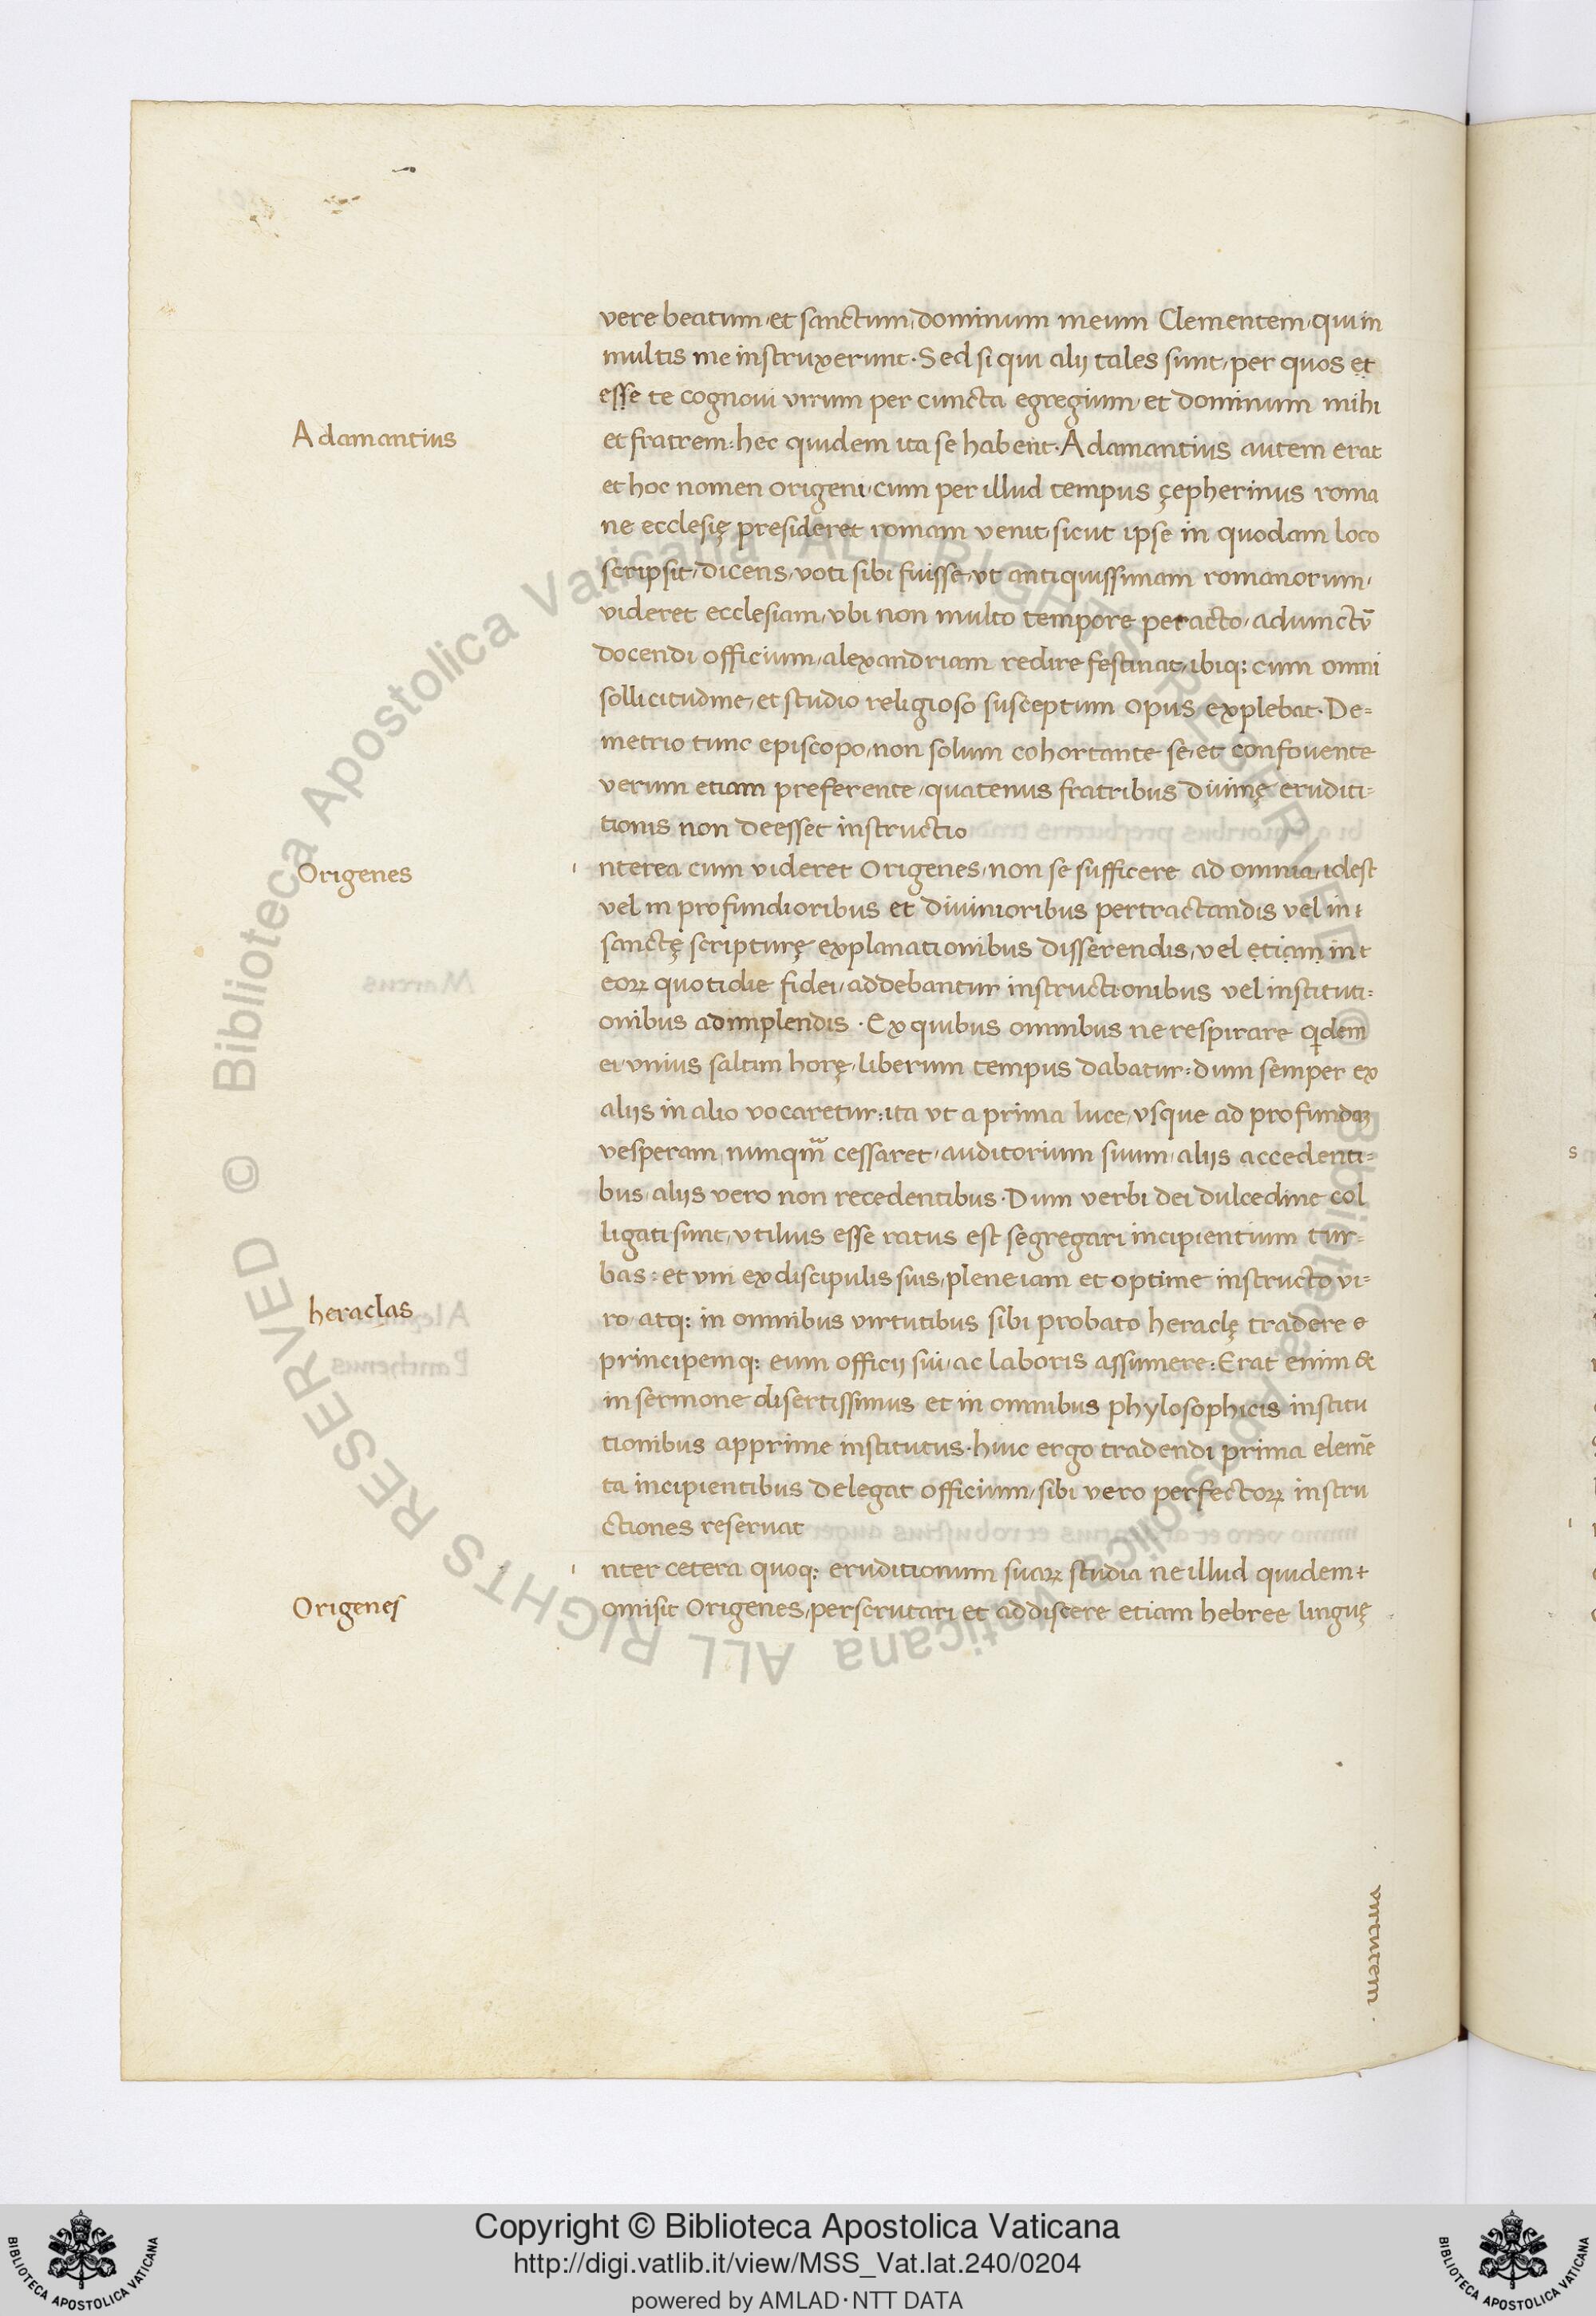 vere beatum, et sanctum, dominum meum Clementem, qui in
multis me instruxerunt. Sed si qui alij tales sunt, per quos et
esse te cognoui virum per cuncta egregium, et dominum mihi
Adamantius
et fratrem: hec quidem ita se habent. Adamantius autem erat
et hoc nomen origeni, cum per illud tempus çepherinus roma
ne ecclesię presideret romam venit, sicut ipse in quodam loco
scripsit, dicens, voti sibi fuisse, vt antiquissimam romanorum,
videret ecclesiam, vbi non multo tempore peracto, ad iunctū
docendi officium, alexandriam redire festinat, ibiq; cum omni
sollicitudine, et studio religioso susceptum opus explebat. De=
metrio tunc episcopo, non solum cohortante se, et confouente
verum etiam preferente, quatenus fratribus diuinę eruditi=
tionis non deesset instructio
Origenes
i nterea cum videret Origenes, non se sufficere ad omnia, idest
vel in profundioribus et diuinioribus pertractandis vel in
sanctę scripturę explanationibus disserendis, vel etiam in
eoꝝ quotidie fidei, addebantur instructionibus vel instituti=
onibus adimplendis. Ex quibus omnibus ne respirare qdem
ei vnius saltim horę, liberum tempus dabatur: dum semper ex
alijs in alio vocaretur: ita vt a prima luce, vsque ad profundaꝫ
vesperam, nunqm̃ cessaret, auditorium suum, alijs accedenti=
bus, alijs vero non recedentibus. Dum verbi dei dulcedine col
ligati sunt, vtilius esse ratus est segregari incipientium tur=
bas: et vni ex discipulis suis, plene iam et optime instructo vi=
heraclas
ro, atq; in omnibus virtutibus sibi probato heraclę tradere
principemq; eum officij sui, ac laboris assumere: Erat enim &
in sermone disertissimus et in omnibus phylosophicis institu
tionibus apprime institutus. huic ergo tradendi prima elemē
ta incipientibus delegat officium, sibi vero perfectoꝝ instru
ctiones reseruat
i nter cetera quoq; eruditionum suaꝝ studia ne illud quidem
Origenes
omisit Origenes, perscrutari et addiscere etiam hebree linguę
virtutem
Copyright © Biblioteca Apostolica Vaticana
http://digi.vatlib.it/view/MSS_Vat.lat.240/0204
powered by AMLAD·NTT DATA
BIBLIOTECA APOSTOLICA VATICANA
BIBLIOTECA APOSTOLICA VATICANA
© Biblioteca Apostolica Vaticana ALL RIGHTS RESERVED
© Biblioteca Apostolica Vaticana ALL RIGHTS RESERVED